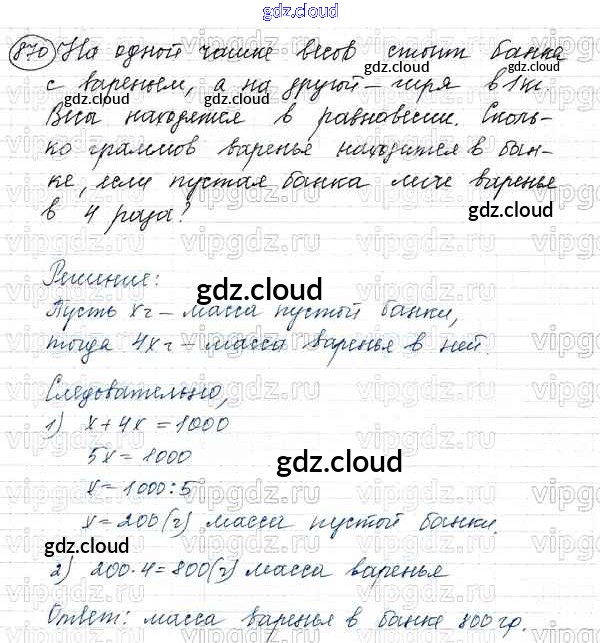 gdz.cloud
870 На одной чашке весов стоит банка
с вареньем, а на другой – гиря в 1 кг.
Весы находятся в равновесии. Сколь-
ко граммов варенья находится в бан-
ке, если пустая банка легче варенья
в 4 раза?
Решение:
Пусть x г – масса пустой банки,
тогда 4x г – масса варенья в ней.
Следовательно,
1) x + 4x = 1000
5x = 1000
x = 1000 : 5
x = 200 (г) масса пустой банки.
2) 200 · 4 = 800 (г) масса варенья
Ответ: масса варенья в банке 800 гр.